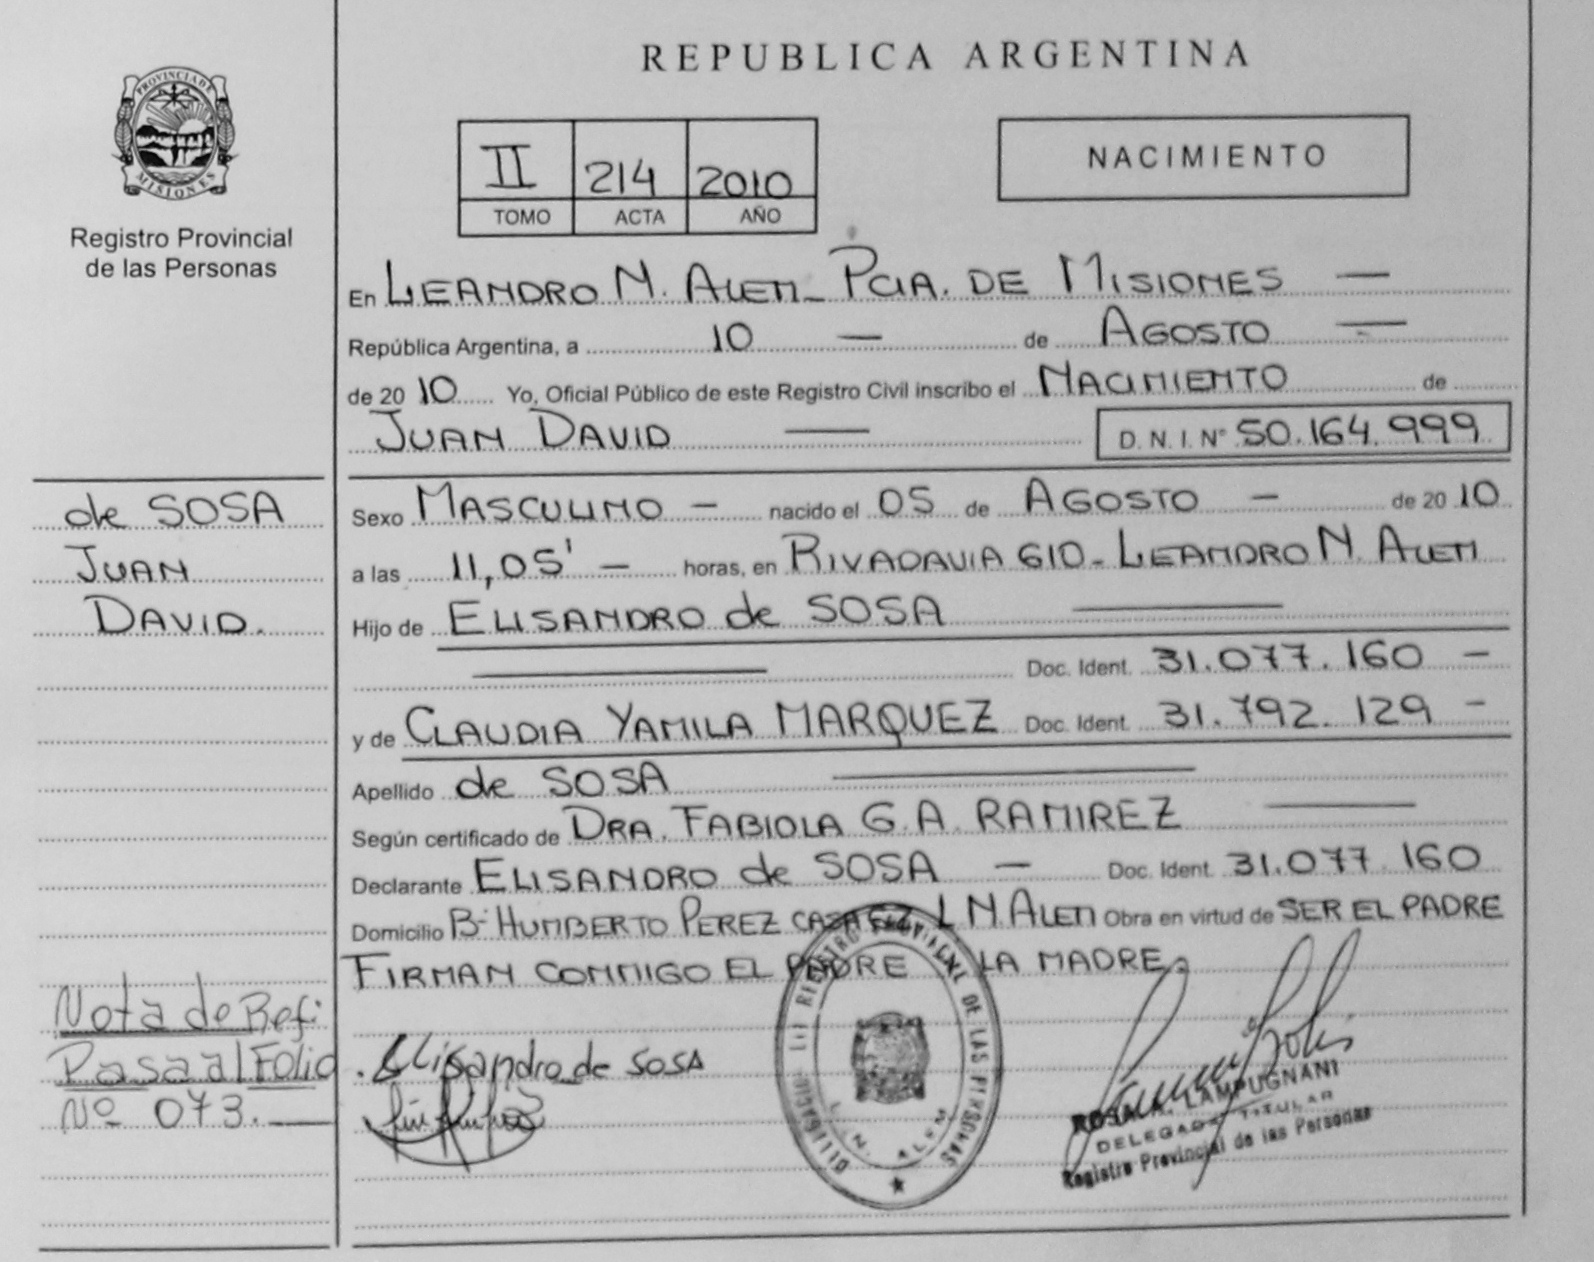 REPUBLICA ARGENTINA
PROVINCIA DE MISIONES
Registro Provincial
de las Personas
II 214 2010
TOMO ACTA AÑO
NACIMIENTO
En LEANDRO N. ALEM - PCIA. DE MISIONES —
República Argentina, a 10 — de AGOSTO —
de 2010 Yo, Oficial Público de este Registro Civil inscribo el NACIMIENTO de
JUAN DAVID — D.N.I. N° 50.164.999
de SOSA
JUAN
DAVID.
Sexo MASCULINO — nacido el 05 de AGOSTO — de 2010
a las 11,05' — horas, en RIVADAVIA 610 - LEANDRO N. ALEM
Hijo de ELISANDRO de SOSA —
— Doc. Ident. 31.077.160 —
y de CLAUDIA YAMILA MARQUEZ Doc. Ident. 31.792.129 —
Apellido de SOSA —
Según certificado de DRA. FABIOLA G.A. RAMIREZ —
Declarante ELISANDRO de SOSA — Doc. Ident. 31.077.160
Domicilio B° HUMBERTO PEREZ CASA L N. ALEM Obra en virtud de SER EL PADRE
FIRMAN CONMIGO EL PADRE Y LA MADRE
Nota de Ref:
Pasa al Folio
Nº 073. —
Elisandro de SOSA
REGISTRO PROVINCIAL DE LAS PERSONAS
L. N. ALEM
ROSA A. LAMPUGNANI
DELEGADA TITULAR
Registro Provincial de las Personas